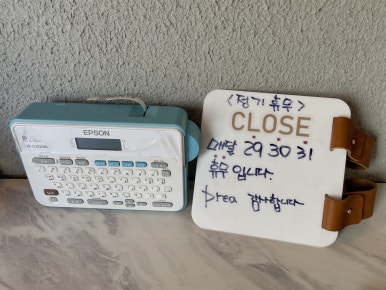 EPSON
<정기휴무>
CLOSE
매달 29 30 31
휴무입니다.
Drea 감사합니다